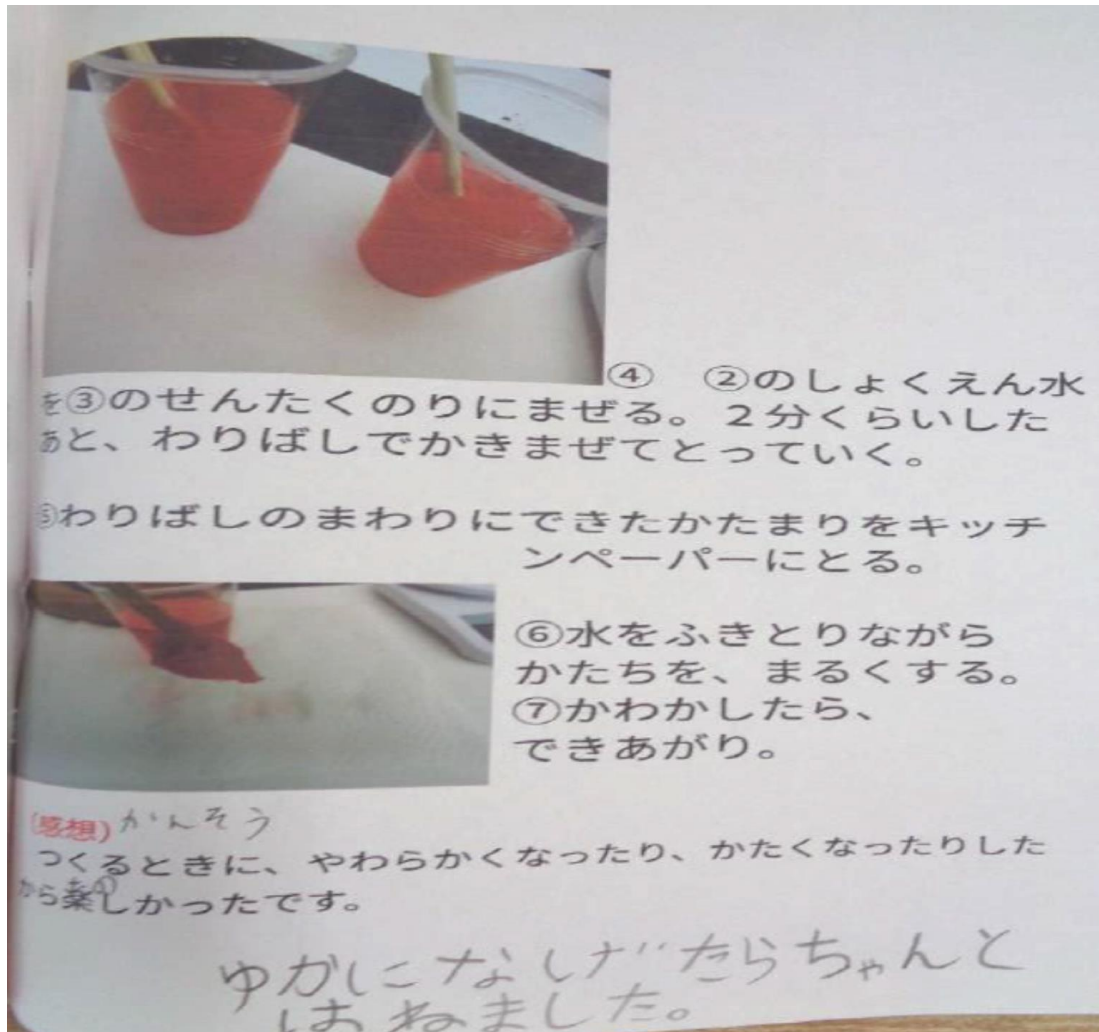 ④ ②のしょくえん水
を③のせんたくのりにまぜる。２分くらいした
あと、わりばしでかきまぜてとっていく。
⑤わりばしのまわりにできたかたまりをキッチ
ンペーパーにとる。
⑥水をふきとりながら
かたちを、まるくする。
⑦かわかしたら、
できあがり。
(感想) かんそう
つくるときに、やわらかくなったり、かたくなったりした
から楽しかったです。
ゆかになしげたらちゃんと
はねました。